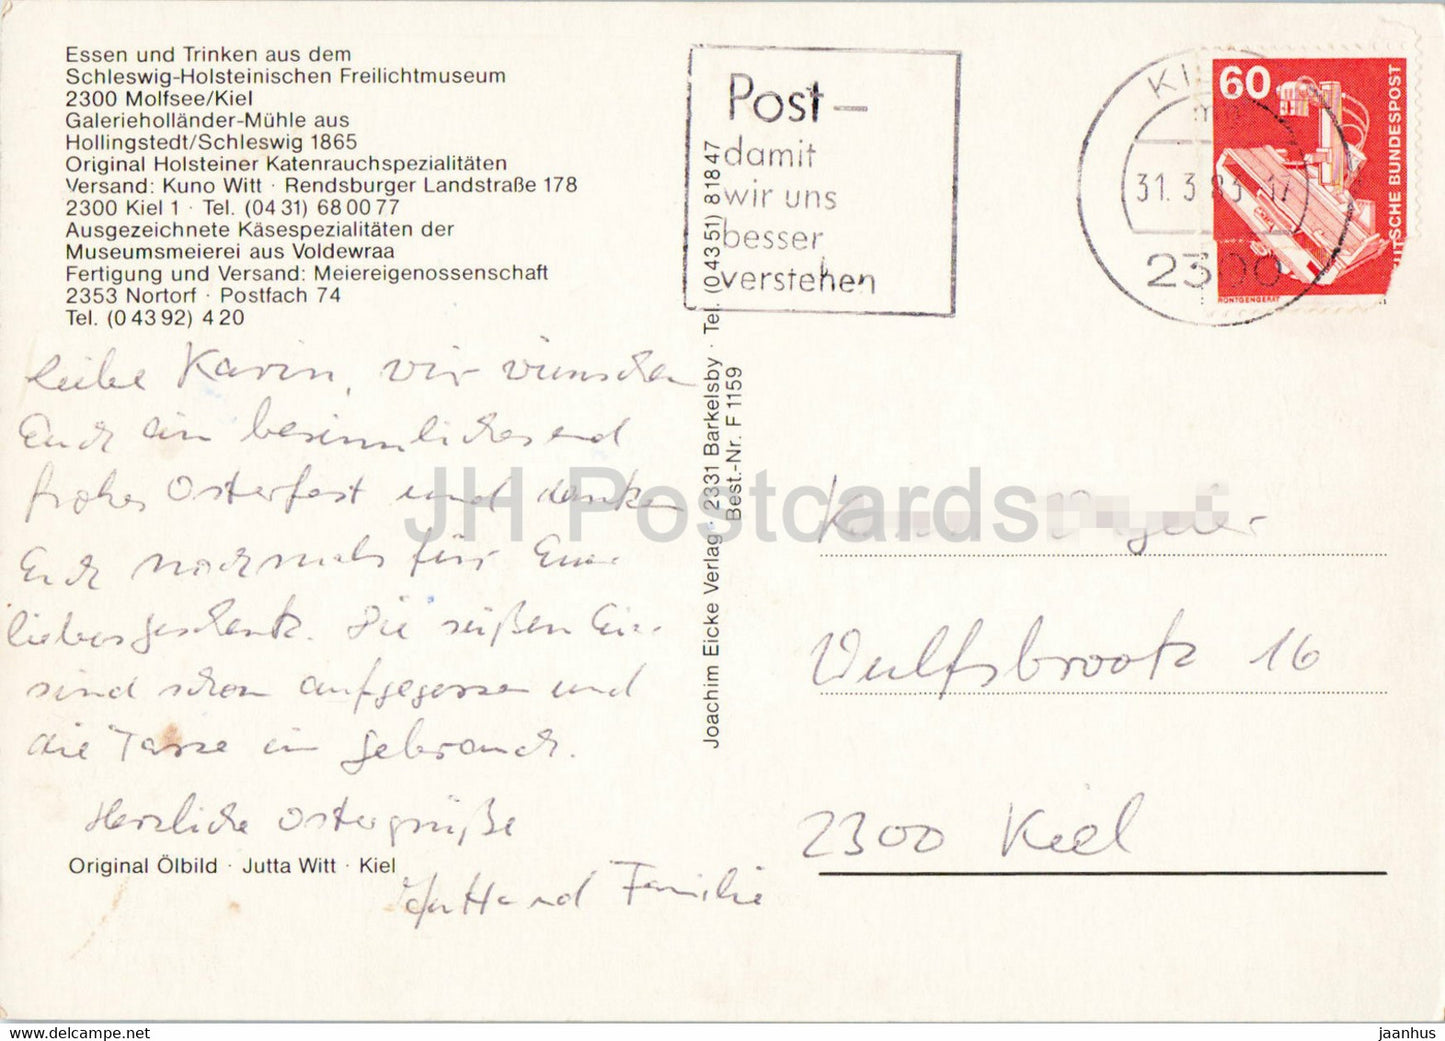 Essen und Trinken aus dem
Schleswig-Holsteinischen Freilichtmuseum
2300 Molfsee/Kiel
Galerieholländer-Mühle aus
Hollingstedt/Schleswig 1865
Original Holsteiner Katenrauchspezialitäten
Versand: Kuno Witt · Rendsburger Landstraße 178
2300 Kiel 1 · Tel. (04 31) 68 00 77
Ausgezeichnete Käsespezialitäten der
Museumsmeierei aus Voldewraa
Fertigung und Versand: Meiereigenossenschaft
2353 Nortorf · Postfach 74
Tel. (0 43 92) 4 20
Liebe Karin, wir wünschen
Euch ein besinnliches und
frohes Osterfest und danken
Euch nochmals für Eure
liebes geschenk. Die süßen
sind schon aufgegessen und
die Tasse im gebrauch.
Herzliche Ostergrüße
Jutta und Familie
Original Ölbild · Jutta Witt · Kiel
Joachim Eicke Verlag · 2331 Barkelsby · Tel. (0 43 51) 8 18 47
Best.-Nr. F 1159
Post–
damit
wir uns
besser
verstehen
31.3.83-17
2300
60
DEUTSCHE BUNDESPOST
RÖNTGENGERÄT
Wulfsbrook 16
2300 Kiel
JH Postcards
www.jhpostcards.com
jaanhus